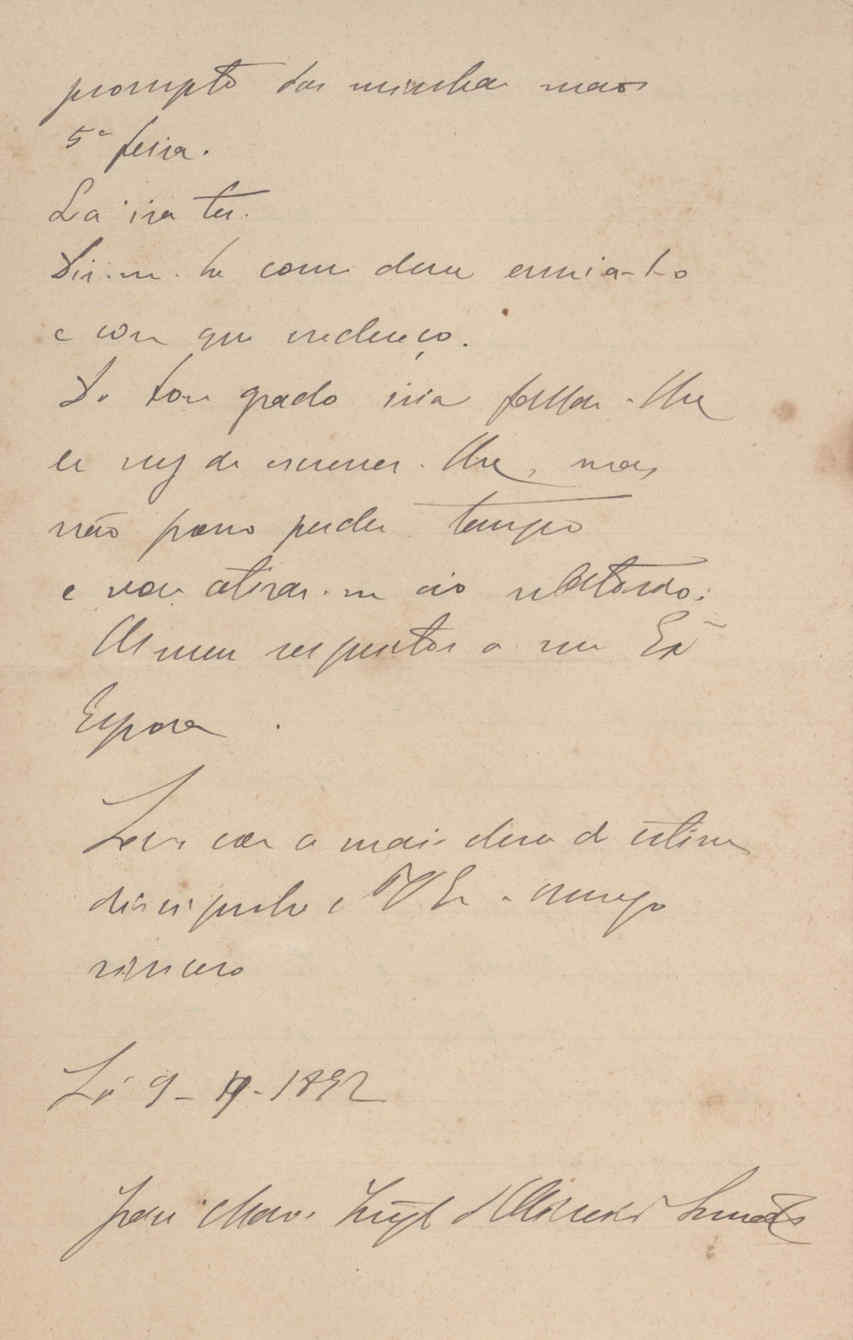 prompto das minhas mãos
5ª feira.
Lá irá ter.
Diz-me-ha como devo enviar-l-o
e com que endereço.
De bom grado iria fallar-lhe
em vez de escrever-lhe, mas
não posso perder tempo
e vou atirar-me ao relatorio.
Os meus respeitos a sua Exª
Esposa.
Sou com a mais elevada estima
discipulo e de V Exª amigo
sincero
9- -1892
José Maria d'Almeida